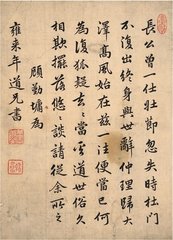 長公曾一仕壯節忽失時杜門
不復出終身與世辭仲理歸大
澤高風始在茲一往便當已何
為復狐疑去〻當奚道世俗久
相欺擺落悠〻談請從余所之
顧勤墉為
雍來年道兄書